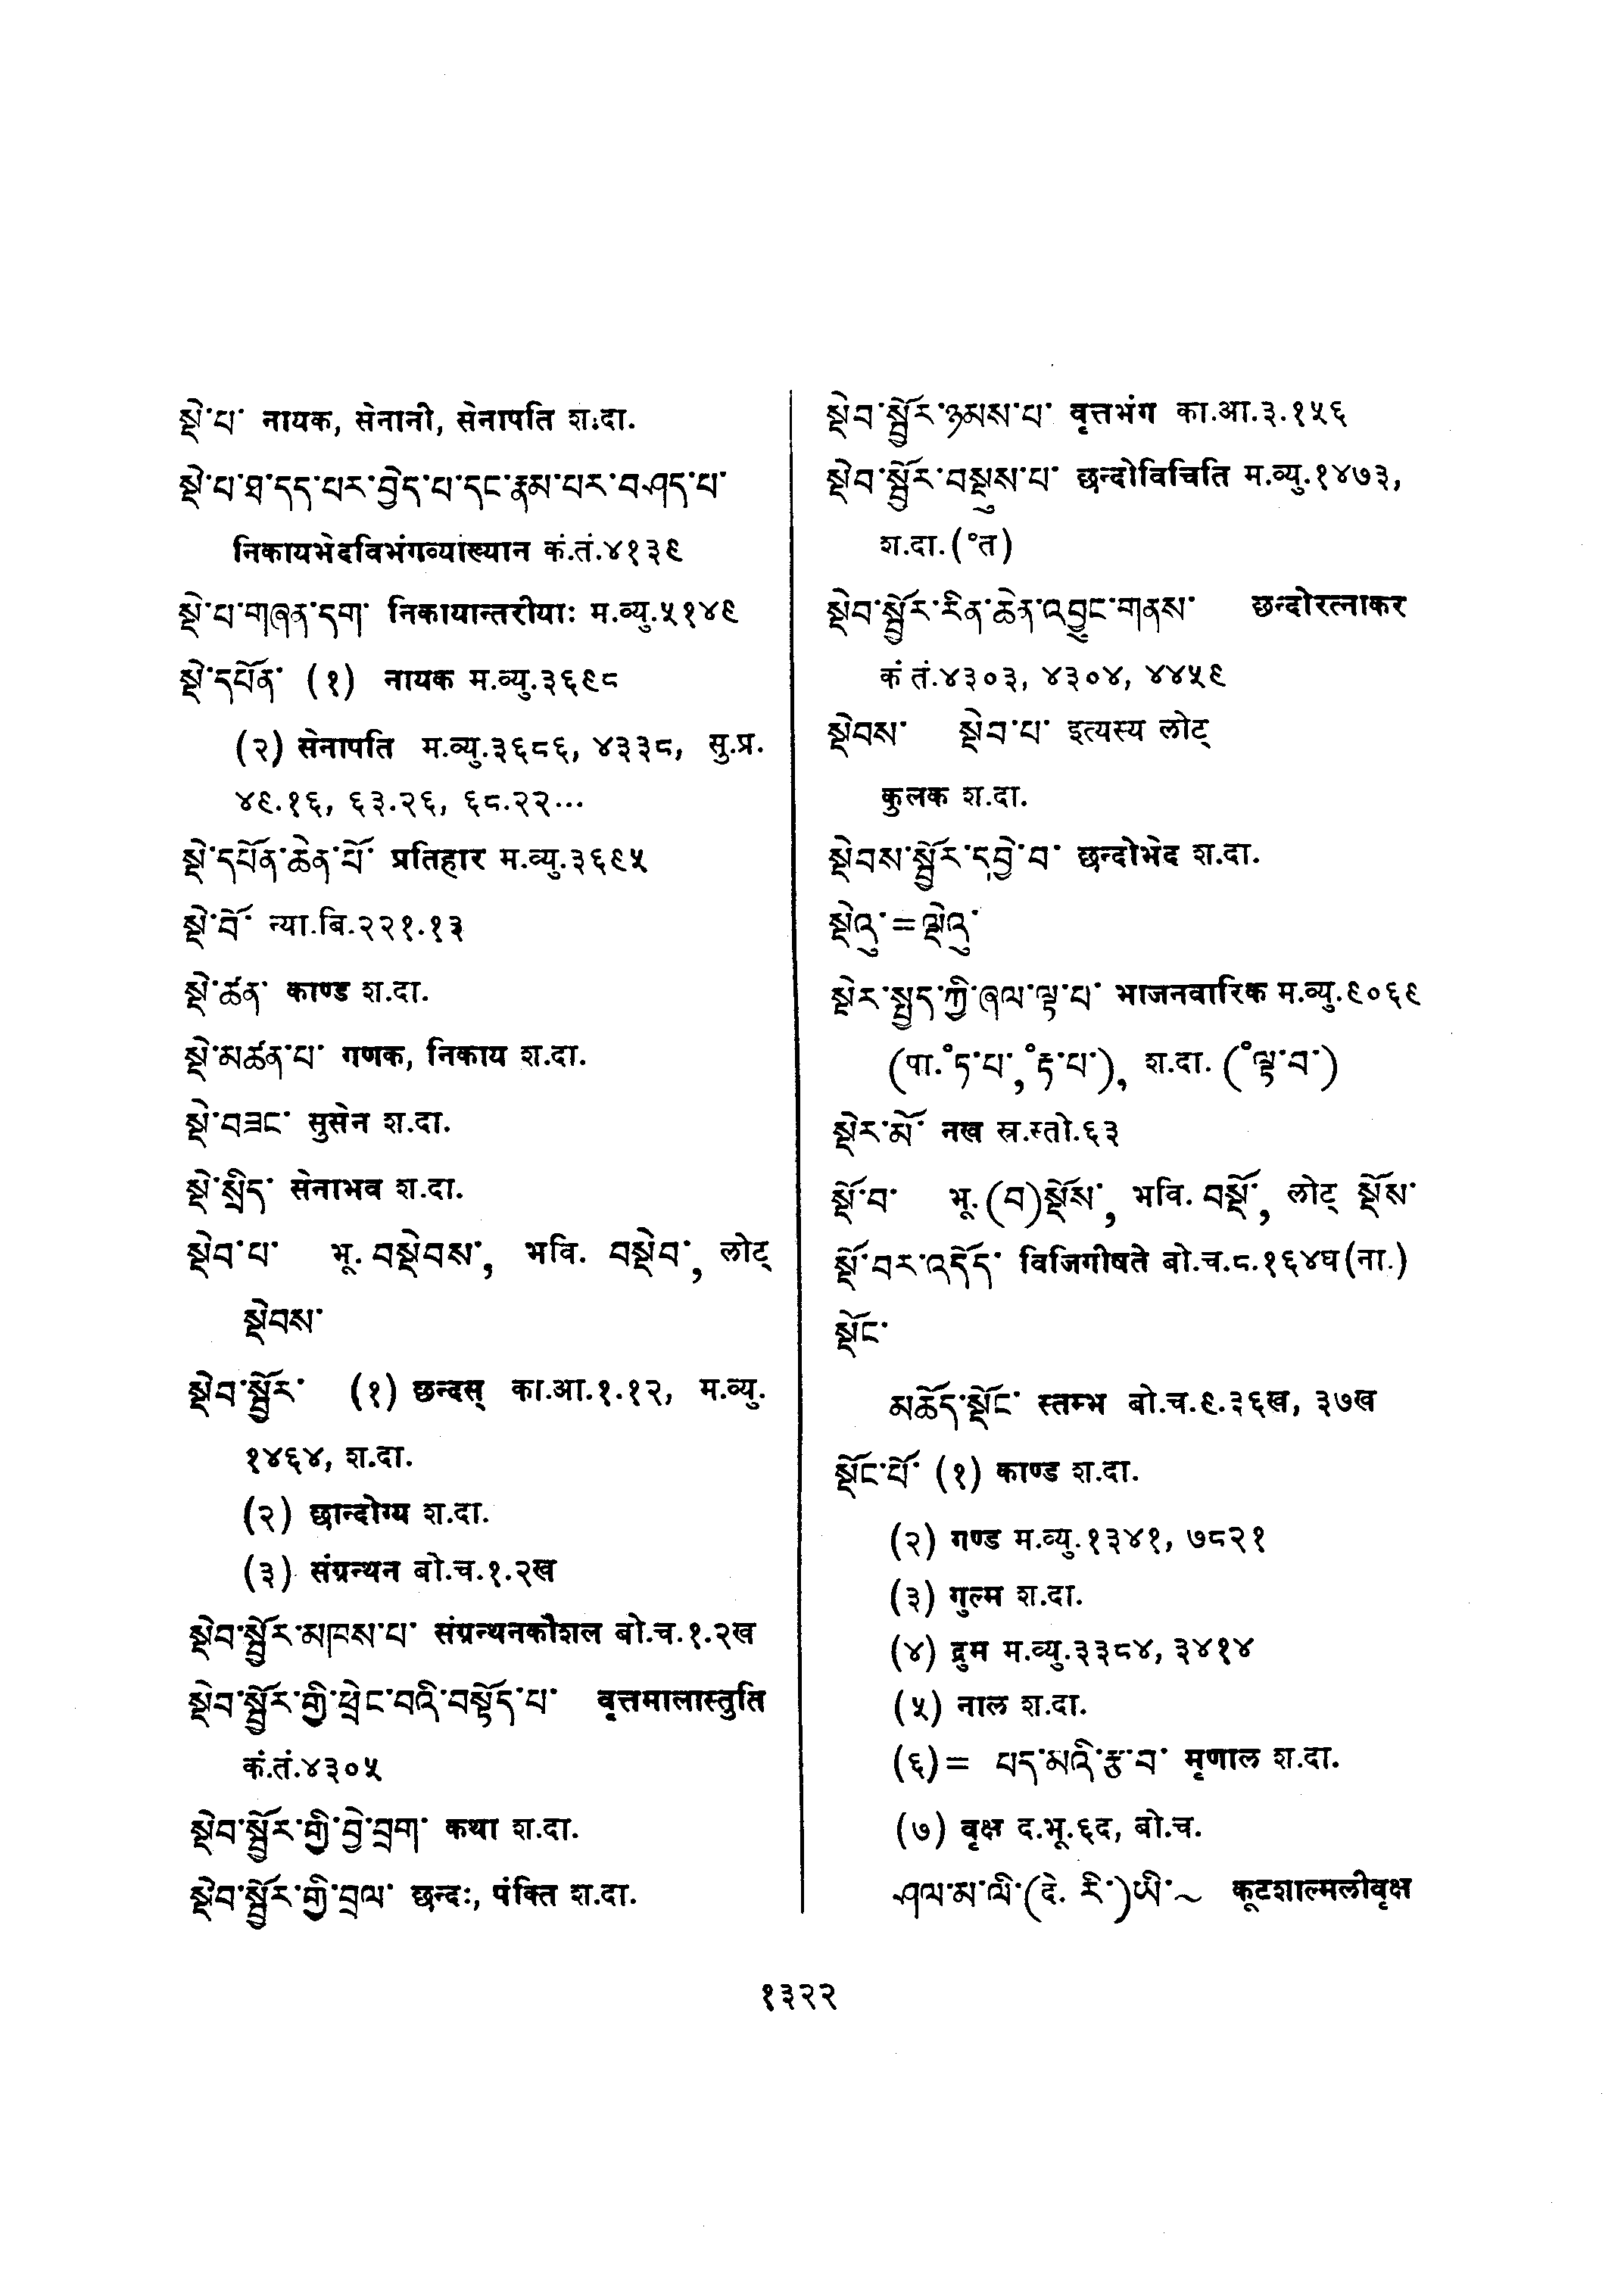 སྡེ་པ་ नायक, सेनानी, सेनापति श.दा.
སྡེ་པ་ཐ་དད་པར་བྱེད་པ་དང་རྣམ་པར་བཤད་པ་
निकायभेदविभंगव्याख्यान कं.तं.४१३९
སྡེ་པ་གཞན་དག་ निकायान्तरीयाः म.व्यु.५१४९
སྡེ་དཔོན་ (१) नायक म.व्यु.३६९८
(२) सेनापति म.व्यु.३६८६, ४३३८, सु.प्र.
४९.१६, ६३.२६, ६८.२२...
སྡེ་དཔོན་ཆེན་པོ་ प्रतिहार म.व्यु.३६९५
སྡེ་བོ་ न्या.बि.२२१.१३
སྡེ་ཚན་ काण्ड श.दा.
སྡེ་མཚན་པ་ गणक, निकाय श.दा.
སྡེ་བཟང་ सुसेन श.दा.
སྡེ་སྲིད་ सेनाभव श.दा.
སྡེབ་པ་ भू. བསྡེབས་, भवि. བསྡེབ་, लोट्
སྡེབས་
སྡེབ་སྦྱོར་ (१) छन्दस् का.आ.१.१२, म.व्यु.
१४६४, श.दा.
(२) छान्दोग्य श.दा.
(३) संग्रन्थन बो.च.१.२ख
སྡེབ་སྦྱོར་མཁས་པ་ संग्रन्थनकौशल बो.च.१.२ख
སྡེབ་སྦྱོར་གྱི་ཕྲེང་བའི་བསྟོད་པ་ वृत्तमालास्तुति
कं.तं.४३०५
སྡེབ་སྦྱོར་གྱི་བྱེ་བྲག་ कथा श.दा.
སྡེབ་སྦྱོར་གྱི་བྲལ་ छन्दः, पंक्ति श.दा.
སྡེབ་སྦྱོར་ཉམས་པ་ वृत्तभंग का.आ.३.१५६
སྡེབ་སྦྱོར་བསྡུས་པ་ छन्दोविचिति म.व्यु.१४७३,
श.दा.(°त)
སྡེབ་སྦྱོར་རིན་ཆེན་འབྱུང་གནས་ छन्दोरत्नाकर
कं तं.४३०३, ४३०४, ४४५९
སྡེབས་ སྡེབ་པ་ इत्यस्य लोट्
कुलक श.दा.
སྡེབས་སྦྱོར་དབྱེ་བ་ छन्दोभेद श.दा.
སྡེའུ་=ལྡེའུ་
སྡེར་སྤྱད་ཀྱི་ཞལ་ལྟ་པ་ भाजनवारिक म.व्यु.९०६९
(पा.°ཏ་པ་,°རྟ་པ་), श.दा. (°ལྟ་བ་)
སྡེར་མོ་ नख स्र.स्तो.६३
སྡོ་བ་ भू.(བ)སྡོས་, भवि. བསྡོ་, लोट् སྡོས་
སྡོ་བར་འདོད་ विजिगीषते बो.च.८.१६४घ(ना.)
སྡོང་
མཆོད་སྡོང་ स्तम्भ बो.च.९.३६ख, ३७ख
སྡོང་པོ་ (१) काण्ड श.दा.
(२) गण्ड म.व्यु.१३४१, ७८२१
(३) गुल्म श.दा.
(४) द्रुम म.व्यु.३३८४, ३४१४
(५) नाल श.दा.
(६)= པད་མའི་རྩ་བ་ मृणाल श.दा.
(७) वृक्ष द.भू.६द, बो.च.
ཤལ་མ་ལི་(दे. རི་)ཡི་~ कूटशाल्मलीवृक्ष
१३२२